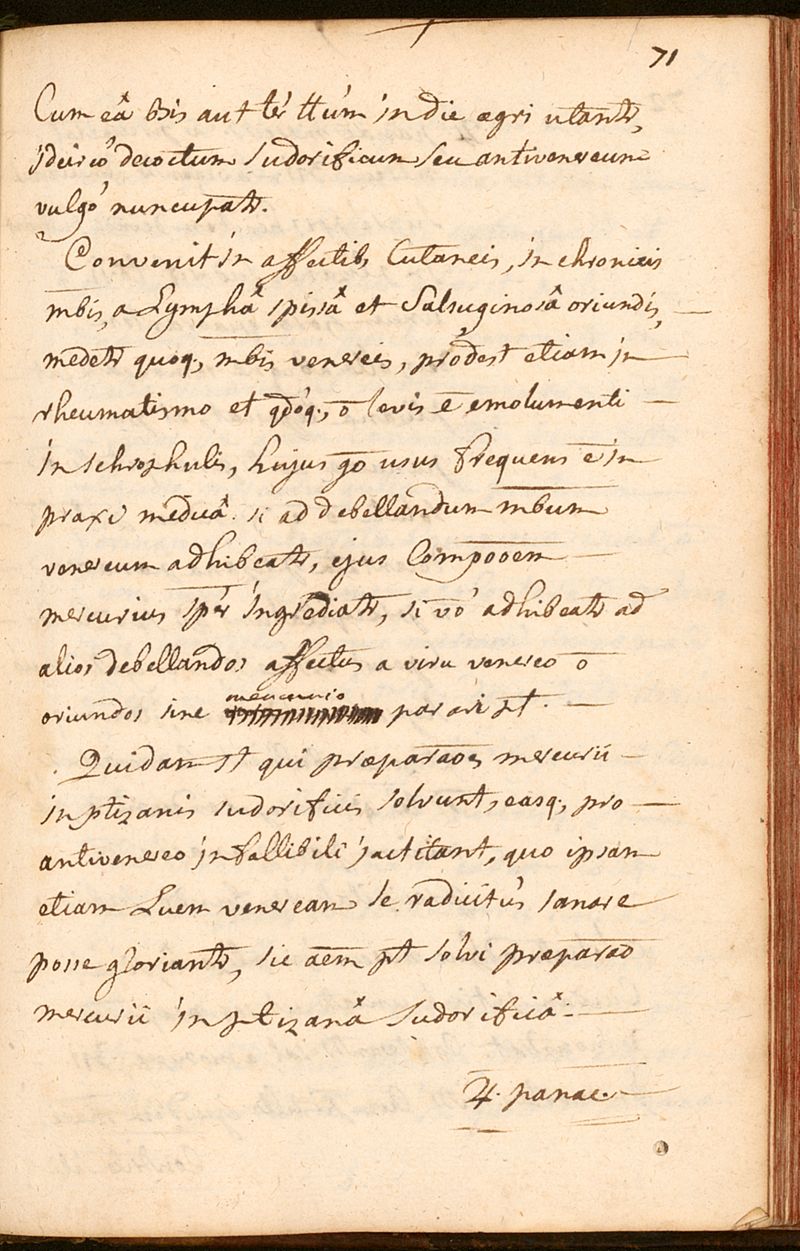 71
Cum eâ bis aut tér ttúm in die ægri utantr,
idcircó decoctum sudorificum seu antivenereum
vulgó nuncupatr.
Convenit in affectib, Cutaneis, in chronicis
mbis, a Lymphâ spissâ et Salsuginosâ oriundis,
medetr quoq, mbis venereis, prodest etiam in
rheumatismo et qdóq, ō levis ē emolumenti
in schrophulis, hujus go usus frequens ē in
praxi medicâ. si ad debellandum mbum
venereum adhibeatr, ejus Compōoem
mercurius spér ingrediatr, si vó adhibeatr ad
alios debellandos affectus a viru venereo ō
oriundos sine mercurio parari pt.
Quidam st qui præparaōes mercurii
in ptizanis sudorificis solvunt, easq, pro
antivenereo infallibili jactitant, quo ipsam
etiam Luem veneream se radicitús sanare
posse gloriantr, sic aēm pt solvi præparaō
mercurii in ptizanâ sudorificâ.
♃. panac.